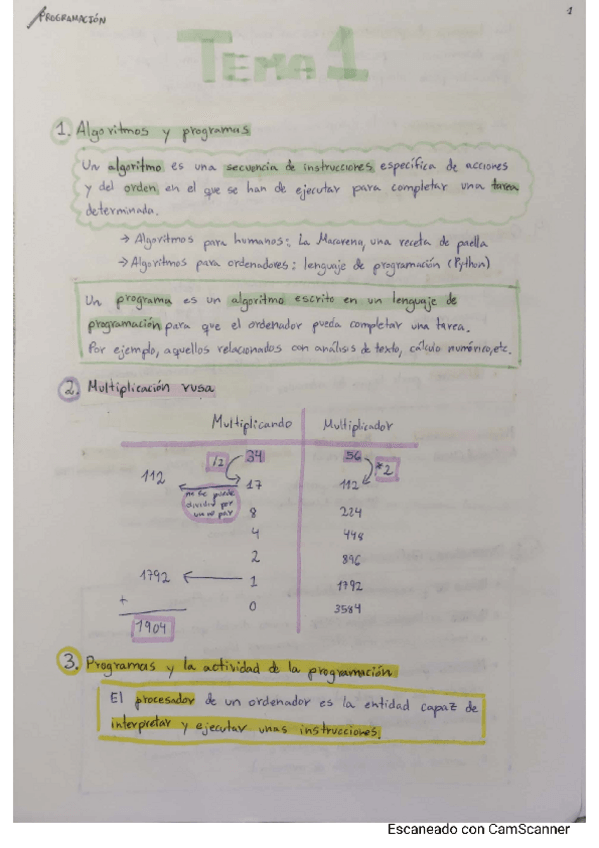 PROGRAMACIÓN
1
TEMA 1
1. Algoritmos y programas
Un algoritmo es una secuencia de instrucciones específica de acciones
y del orden en el que se han de ejecutar para completar una tarea
determinada.
→ Algoritmos para humanos: La Macarena, una receta de paella
→ Algoritmos para ordenadores: lenguaje de programación (Python)
Un programa es un algoritmo escrito en un lenguaje de
programación para que el ordenador pueda completar una tarea.
Por ejemplo, aquellos relacionados con análisis de texto, cálculo numérico, etc.
2. Multiplicación rusa
Multiplicando Multiplicador
/2 34 56 *2
112 ← 17 112
no se puede
dividir por
un nº par
8 224
4 448
2 896
1792 ← 1 1792
+ 0 3584
1904
3. Programas y la actividad de la programación
El procesador de un ordenador es la entidad capaz de
interpretar y ejecutar unas instrucciones.
Escaneado con CamScanner